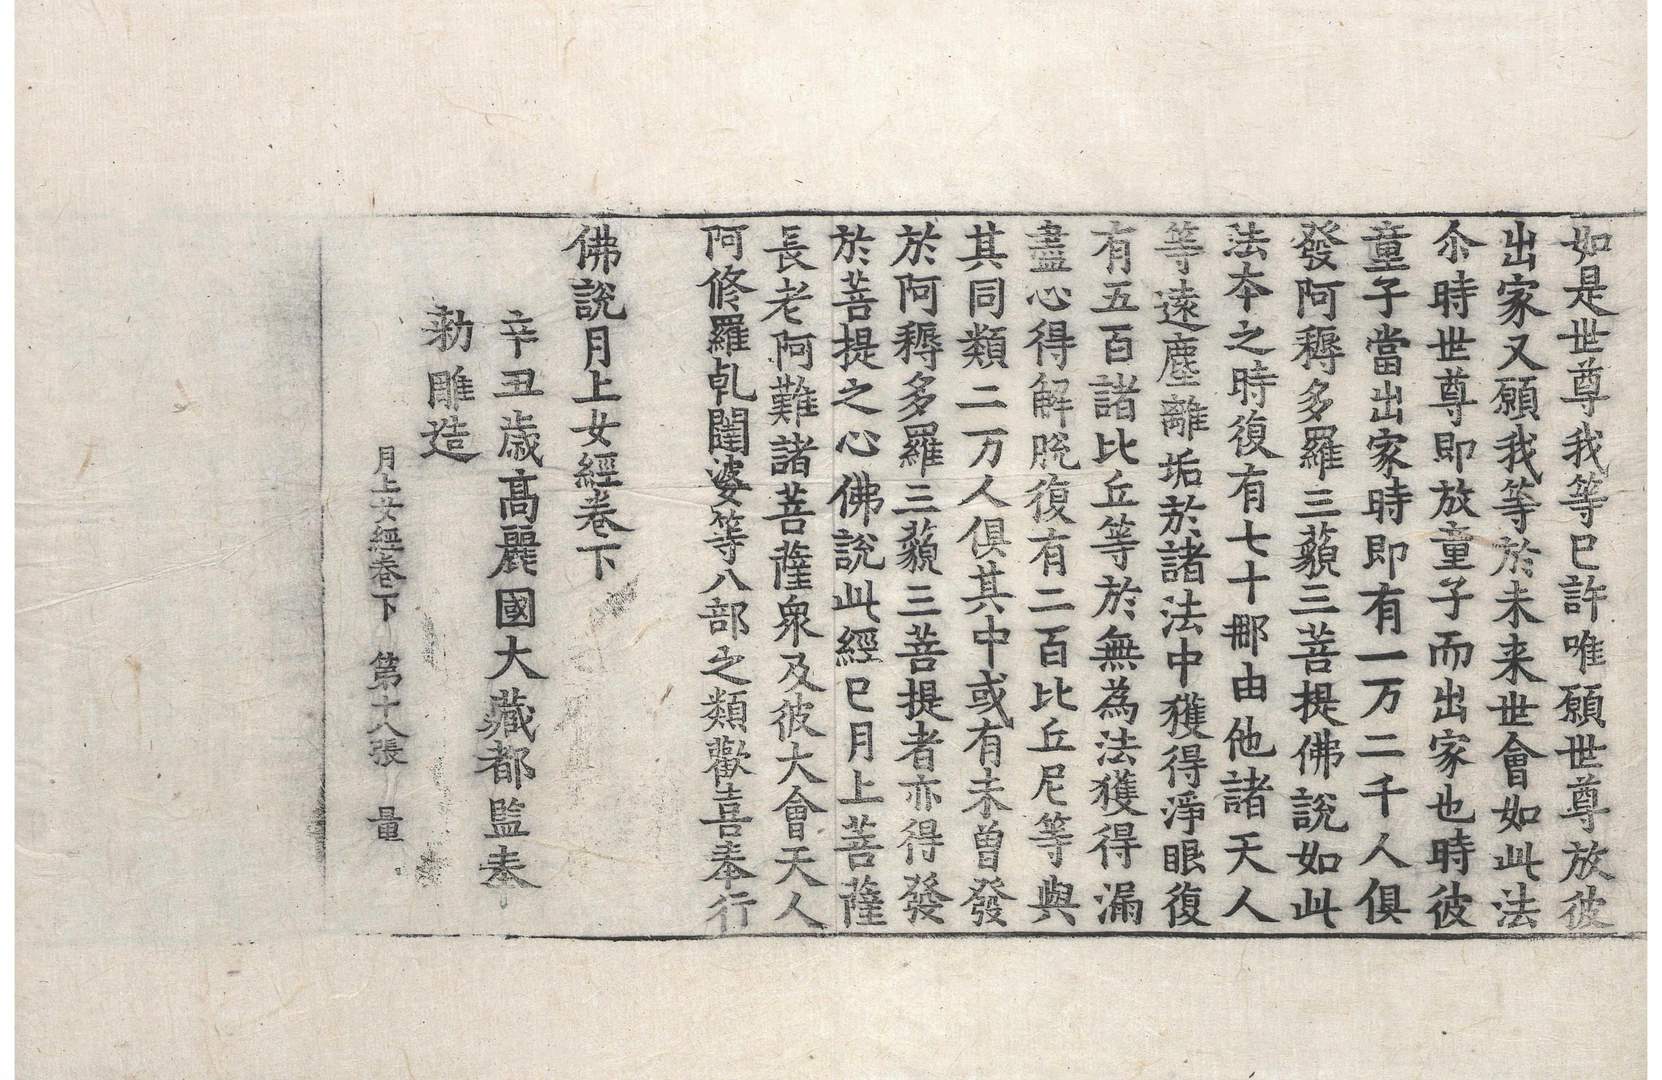 如是世尊我等已許唯願世尊放彼
出家又願我等於未来世會如此法
尒時世尊即放童子而出家也時彼
童子當出家時即有一万二千人俱
發阿耨多羅三藐三菩提佛說如此
法夲之時復有七十那由他諸天人
等遠塵離垢於諸法中獲得淨眼復
有五百諸比丘等於無為法獲得漏
盡心得解脫復有二百比丘尼等與
其同類二万人俱其中或有未曾發
於阿耨多羅三藐三菩提者亦得發
於菩提之心佛說此經已月上菩薩
長老阿難諸菩薩衆及彼大會天人
阿修羅乹闥婆等八部之類歡喜奉行
佛說月上女經卷下
辛丑歳高麗國大藏都監奉
勑雕造
月上女經卷下 第十八張 量